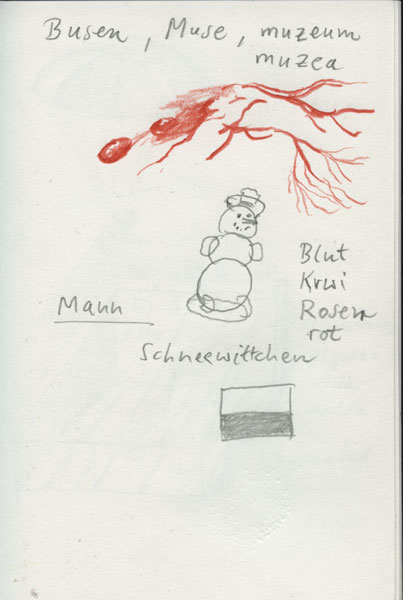 Busen, Muse, muzeum
muzea
Blut
Krwi
Rosen
rot
Mann
Schneewittchen